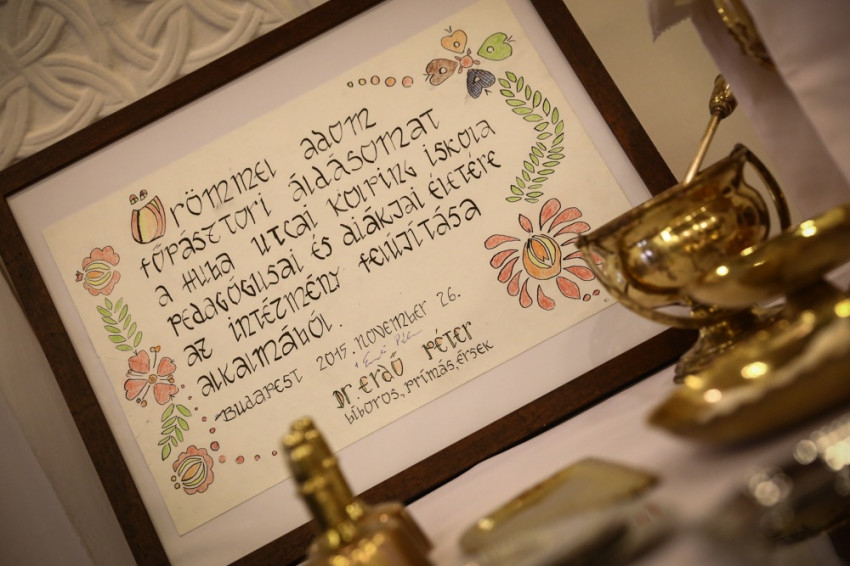 Örömmel adom
főpásztori áldásomat
a Huba utcai Kolping Iskola
pedagógusai és diákjai életére
az intézmény felújítása
alkalmából.
Budapest 2015. november 26.
Dr. Erdő Péter
bíboros, prímás, érsek